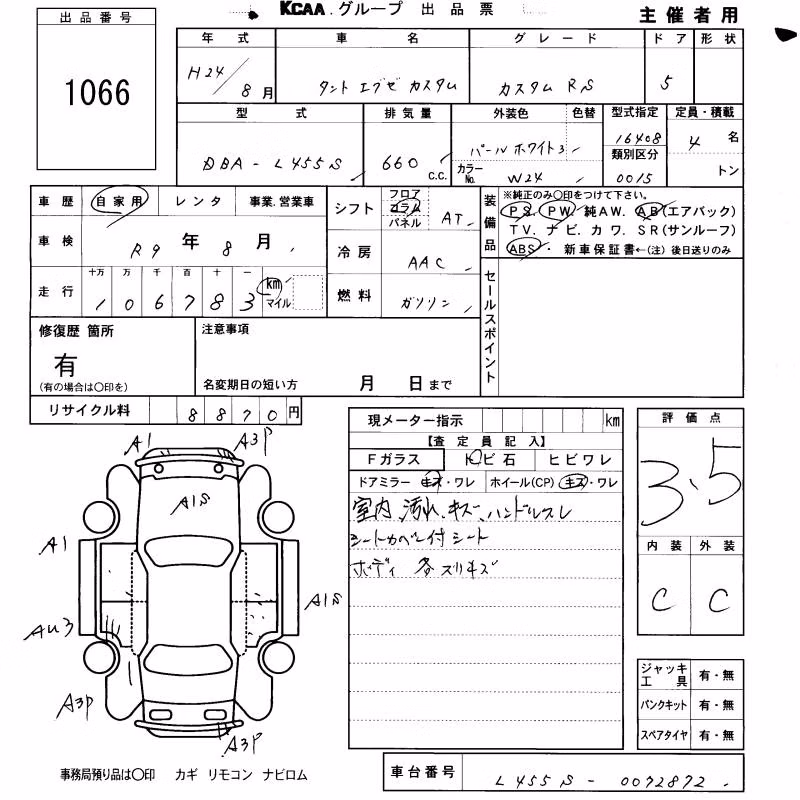 KCAA.グループ 出品票 主催者用
出品番号
1066
年式 車名 グレード ドア 形状
H24/8月 タント エグゼ カスタム カスタム RS 5
型式 排気量 外装色 色替 型式指定 定員・積載
DBA-L455S 660 C.C. パールホワイト3 16408 4名
カラーNo. W24 類別区分 0015 トン
車歴 自家用 レンタ 事業.営業車
車検 R9年8月
走行 十万 万 千 百 十 一
106783 km マイル
シフト フロア コラム パネル AT
冷房 AAC
燃料 ガソリン
装備品 ※純正のみ○印をつけて下さい。
PS. PW. 純AW. AB(エアバック)
TV. ナビ. カワ. SR(サンルーフ)
ABS・ 新車保証書←(注)後日送りのみ
セールスポイント
修復歴 箇所
有
(有の場合は○印を)
注意事項
名変期日の短い方 月 日まで
リサイクル料 8870円
現メーター指示 km
【査定員記入】
Fガラス トビ石 ヒビワレ
ドアミラー キズ・ワレ ホイール(CP) キズ・ワレ
室内 汚れ、キズ、ハンドルスレ
シートカバー付 シート
ボディ 各 スリキズ
評価点
3.5
内装 外装
C C
ジャッキ工具 有・無
パンクキット 有・無
スペアタイヤ 有・無
A1 A3P
A1S
A1
A1S
AU3
A3P
A3P
事務局預り品は○印 カギ リモコン ナビロム
車台番号 L455S-0072872